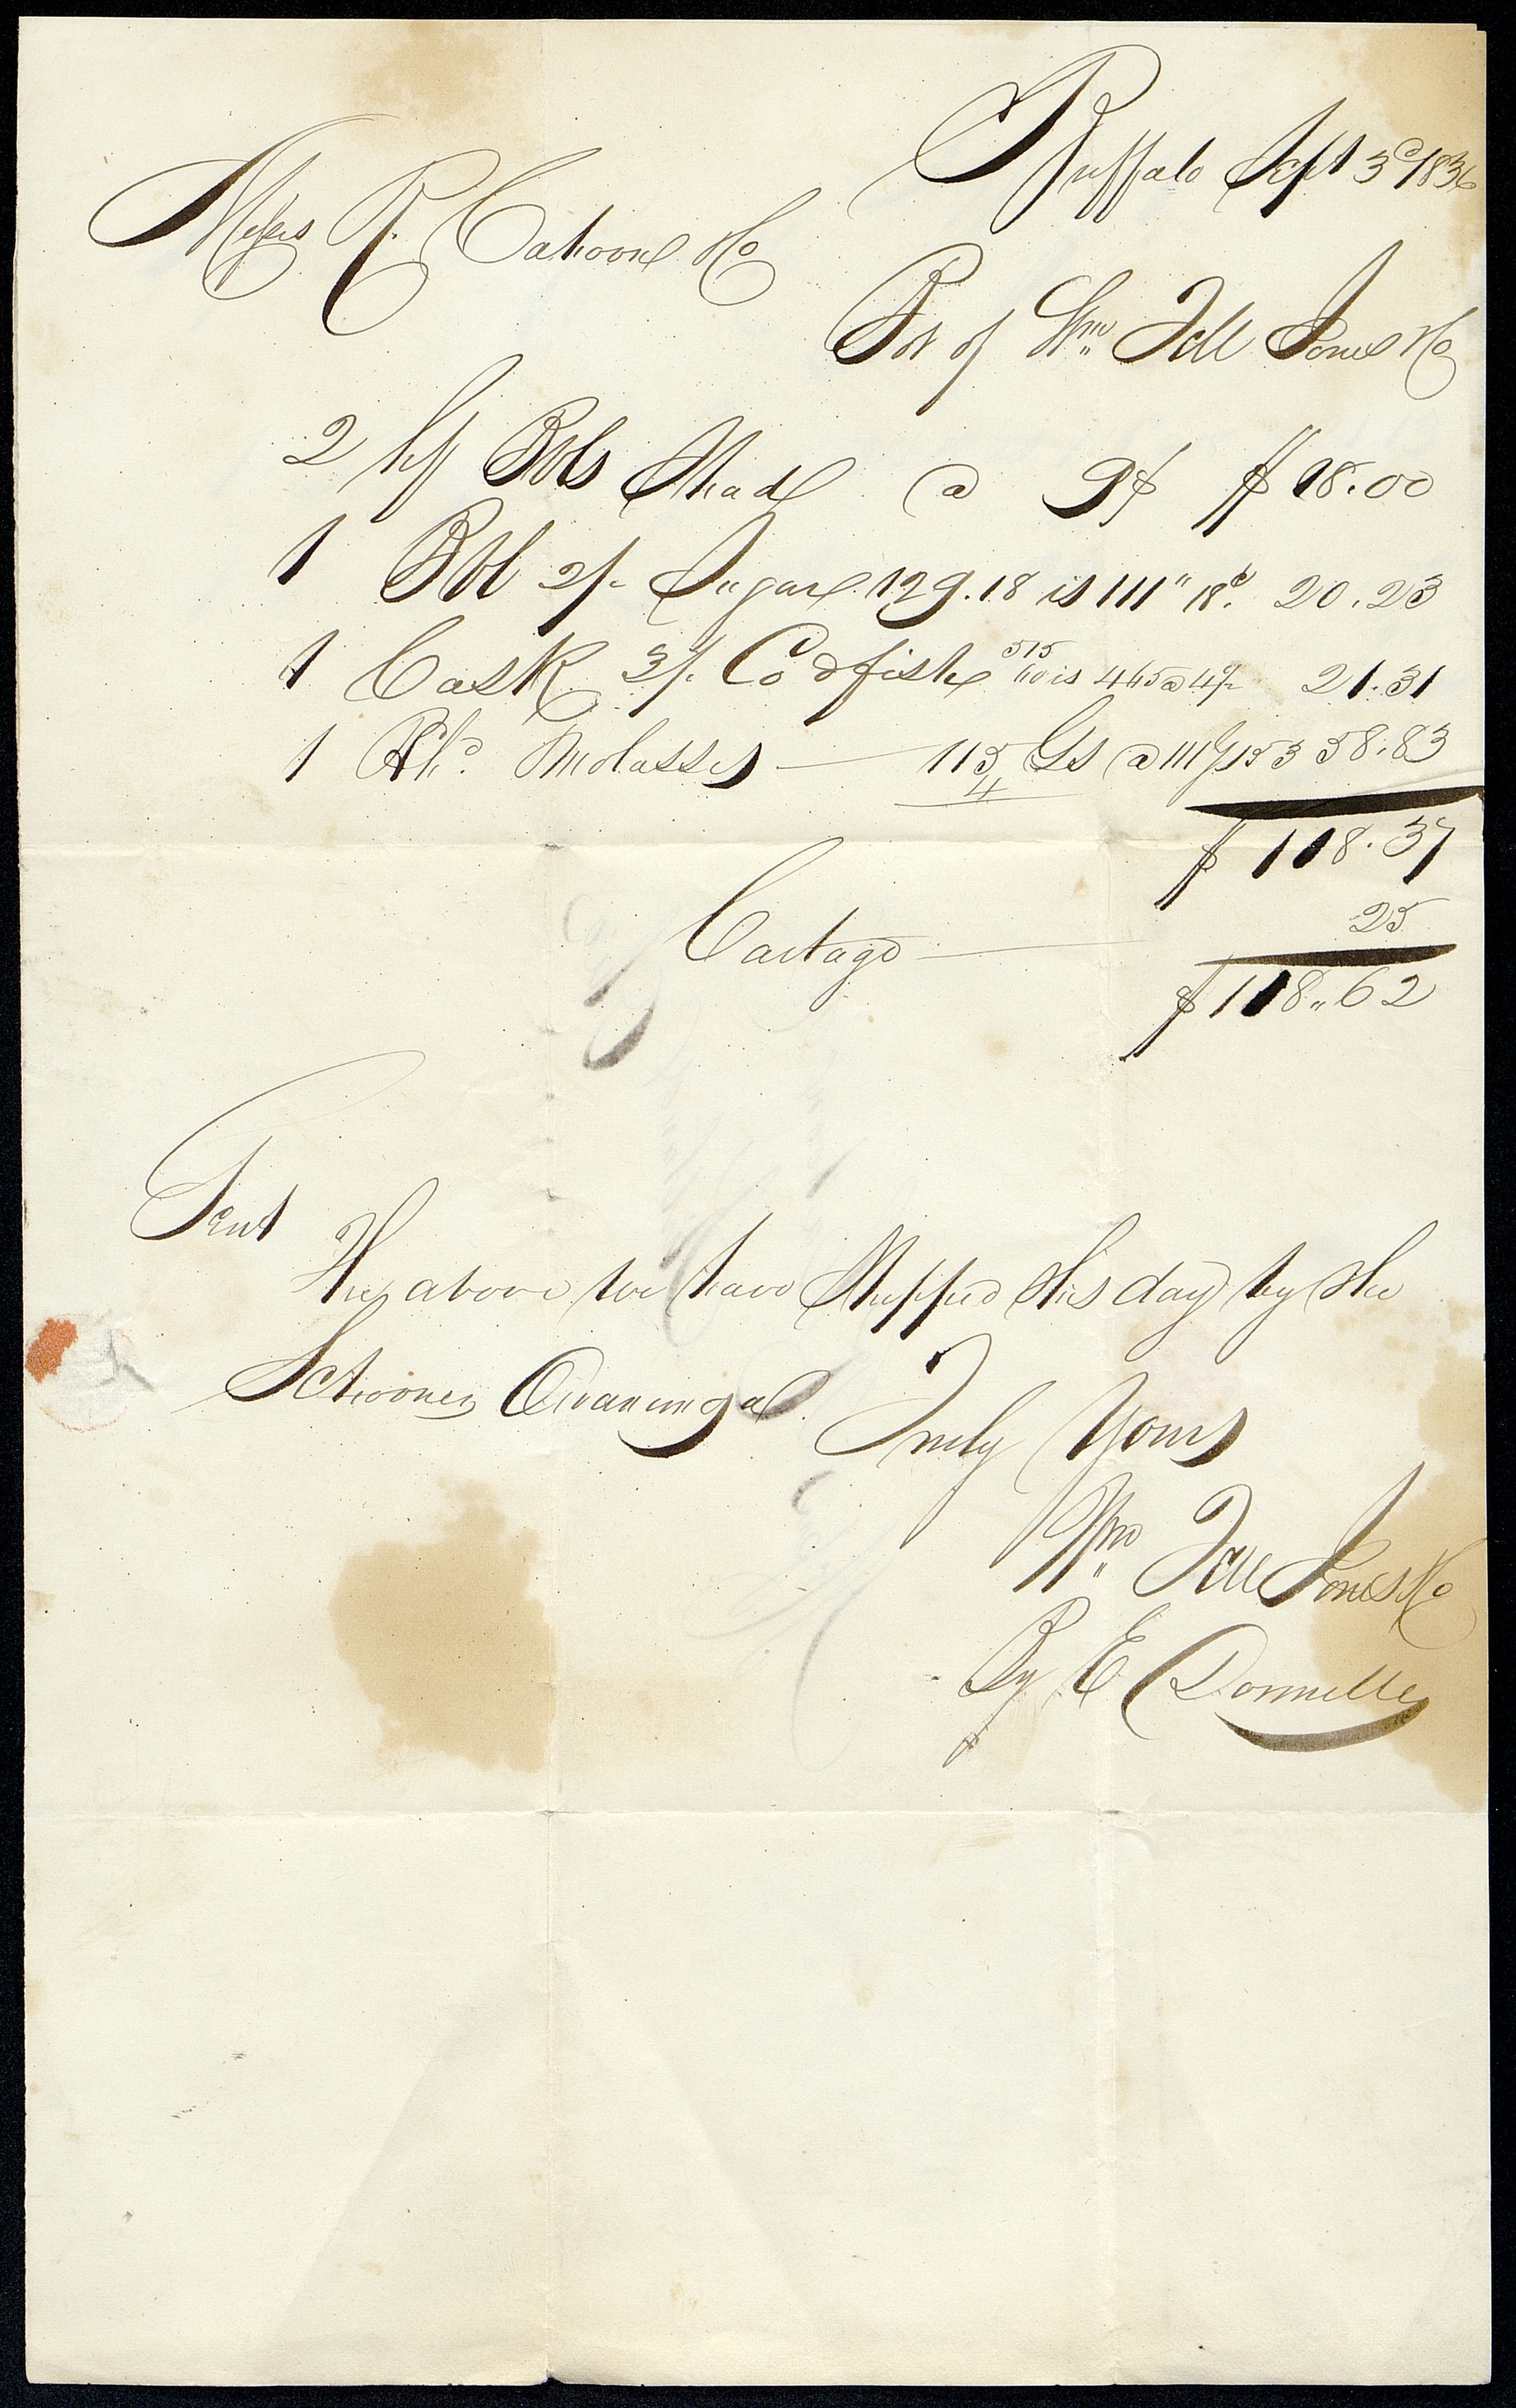 Buffalo Sept 3d 1836
Messrs R. Cahoone & Co
Bot of Wm Tell Jones & Co
2 hf Bbls Shad @ 9$ $18.00
1 Bbl 2/- Sugar 129.18 is 111 " 18 20.23
1 Cask 3/- Codfish 515 50 is 465 @ 4 21.31
1 Hhd Molasses — 115 Gs @ 111 53 58.83
4
$118.37
Cartage — 25
$118.62
Gent
The above we have Shipped this day by the
Schooner
Truly Yours
Wm Tell Jones & Co
By E Donnelley